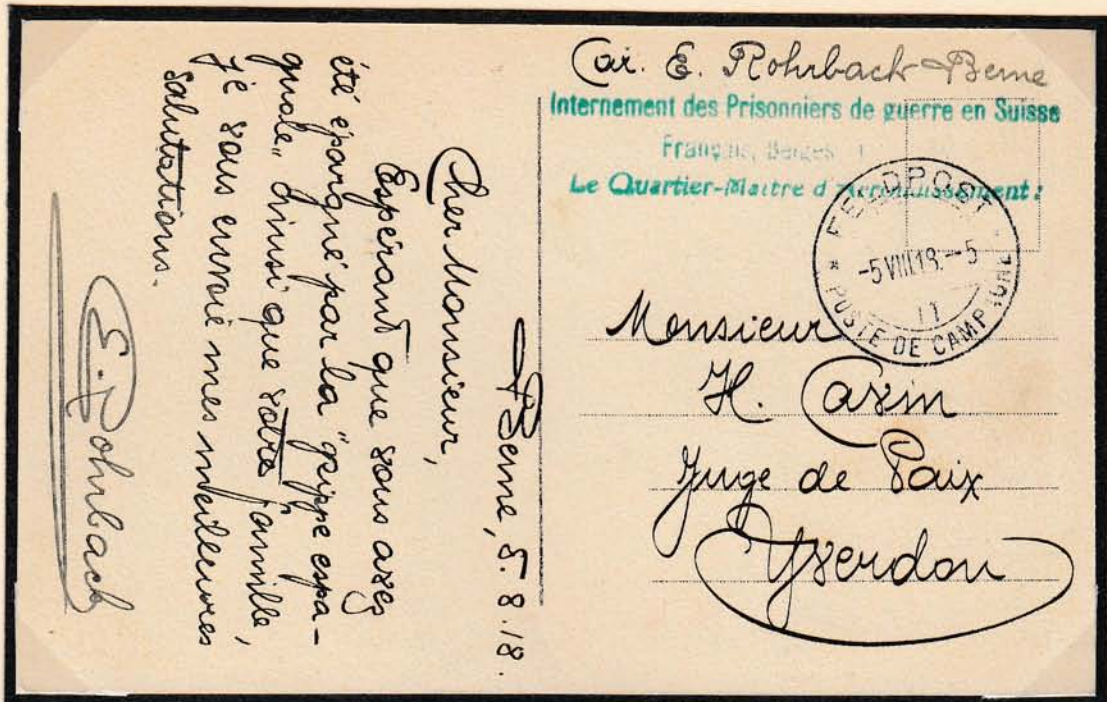 Car. E. Rohrbach Berne
Internement des Prisonniers de guerre en Suisse
Français, Belges
Le Quartier-Maitre d'Arrondissement:
FELDPOST
-5 VIII 18. - 5
11
* POSTE DE CAMPAGNE
Monsieur
H. Cavin
Juge de Paix
Yverdon
Berne, 5.8.18.
Cher Monsieur,
Espérant que vous avez
été épargné par la "grippe espa-
gnole" ainsi que votre famille,
je vous envoie mes meilleures
salutations.
E. Rohrbach